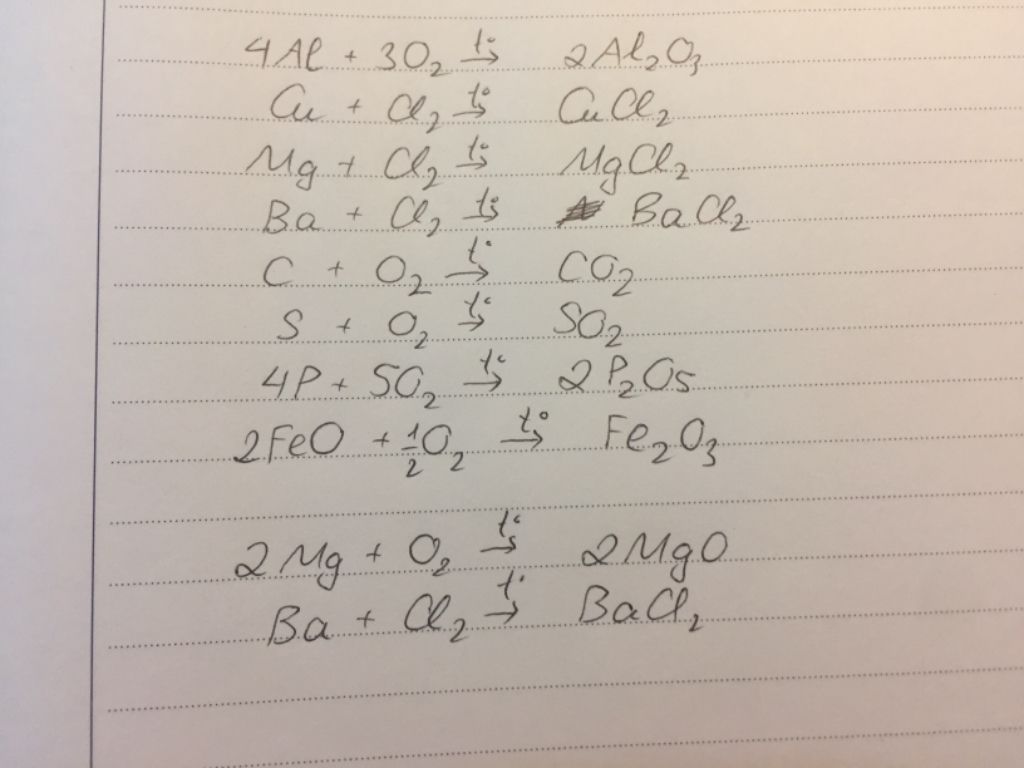 4Al + 3O₂ →t° 2Al₂O₃
Cu + Cl₂ →t° CuCl₂
Mg + Cl₂ →t° MgCl₂
Ba + Cl₂ →t° BaCl₂
C + O₂ →t° CO₂
S + O₂ →t° SO₂
4P + 5O₂ →t° 2P₂O₅
2FeO + ½O₂ →t° Fe₂O₃
2Mg + O₂ →t° 2MgO
Ba + Cl₂ →t° BaCl₂